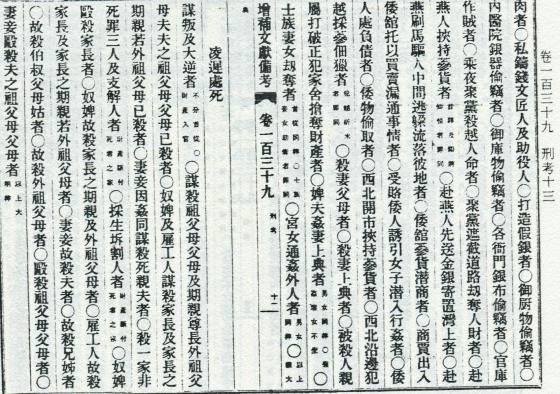 卷一百三十九 刑考十三
肉者〇私鑄錢文匠人及助役人〇打造假銀者〇御廚物偸竊者〇
內醫院銀器偸竊者〇御庫物偸竊者〇各衙門銀布偸竊者〇官庫
作賊者〇乘夜聚黨殺越人命者〇聚黨遮截道路刼奪人財者〇赴
燕人挾持參貨者〇赴燕人先送金銀寄置灣上者〇赴
燕刷馬驅人中間逃躱流落彼地者〇倭舘參貨潛商者〇商賈出入
倭舘托以買賣漏通事情者〇受賂倭人誘引女子潛入行姦者〇倭
人處負債者〇倭物偸取者〇西北開市挾持參貨者〇西北沿邊犯
越採參佃獵者〇殺妻父母者〇殺妻上典者〇被殺人親
屬打破正犯家舍搶奪財產者〇婢夫姦妻上典者
士族妻女刼奪者〇宮女通姦外人者
增補文獻備考 卷一百三十九 刑考 十二
凌遲處死
謀叛及大逆者〇謀殺祖父母父母及期親尊長外祖父
母夫夫之祖父母父母已殺者〇奴婢及雇工人謀殺家長及家長之
期親若外祖父母已殺者〇妻妾因姦同謀殺死親夫者〇殺一家非
死罪三人及支解人者〇採生坼割人者〇奴婢
毆殺家長者〇奴婢故殺家長之期親及外祖父母者〇雇工人故殺
家長及家長之期親若外祖父母者〇妻妾故殺夫者〇故殺兄姊者
〇故殺伯叔父母姑者〇故殺外祖父母者〇毆殺祖父母父母者〇
妻妾毆殺夫之祖父母父母者 以上大明律